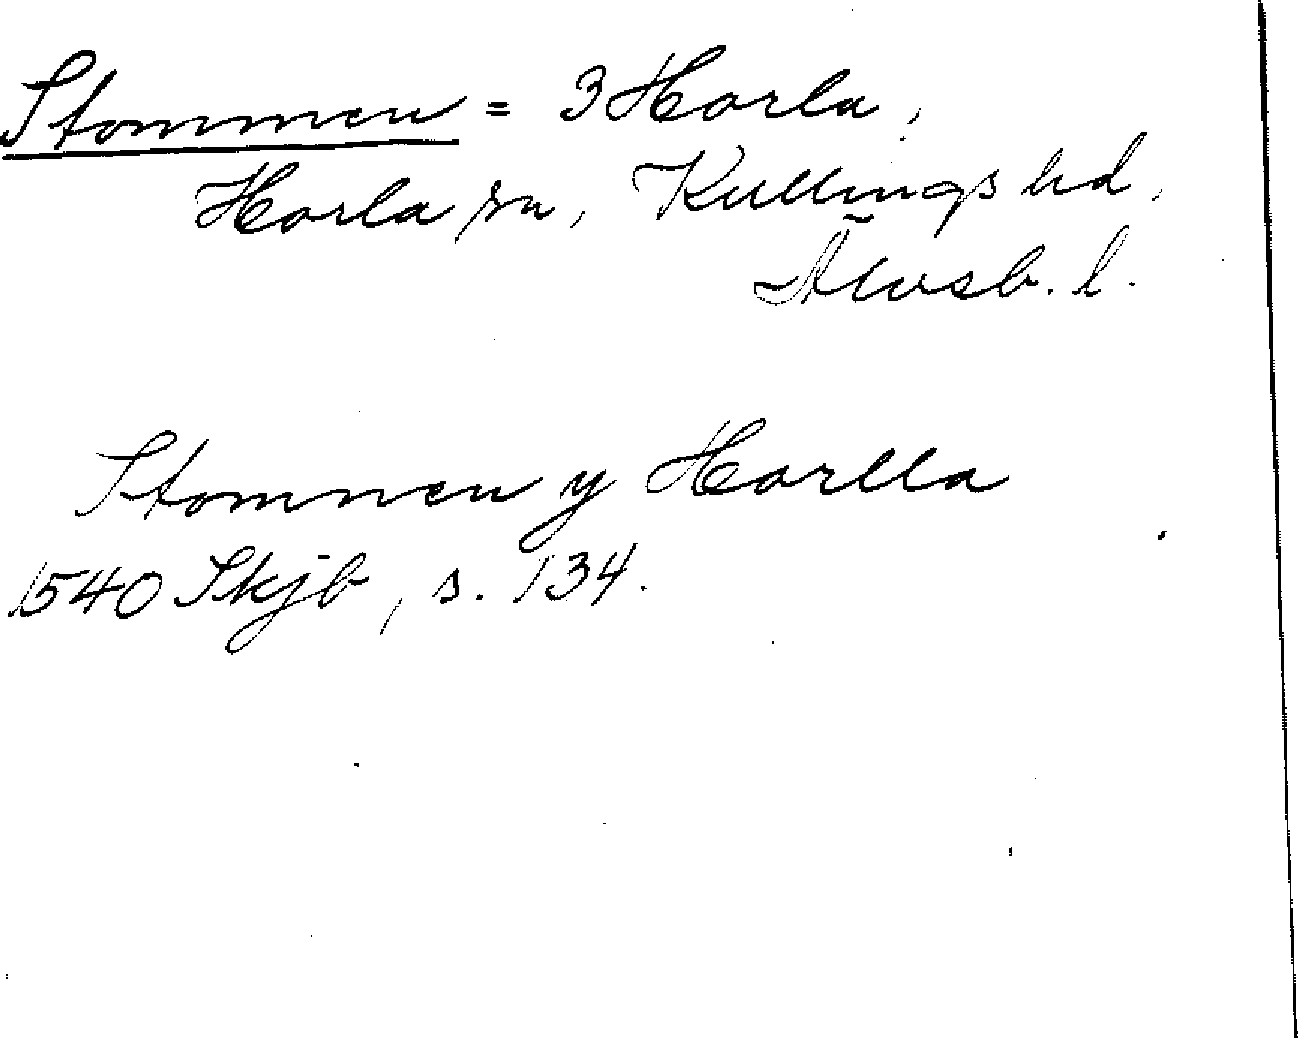 Stommen = 3 Horla,
Horla sn, Kullings hd,
Älvsb. l.
Stomnen y Horlla
1540 Skjb, s. 134.